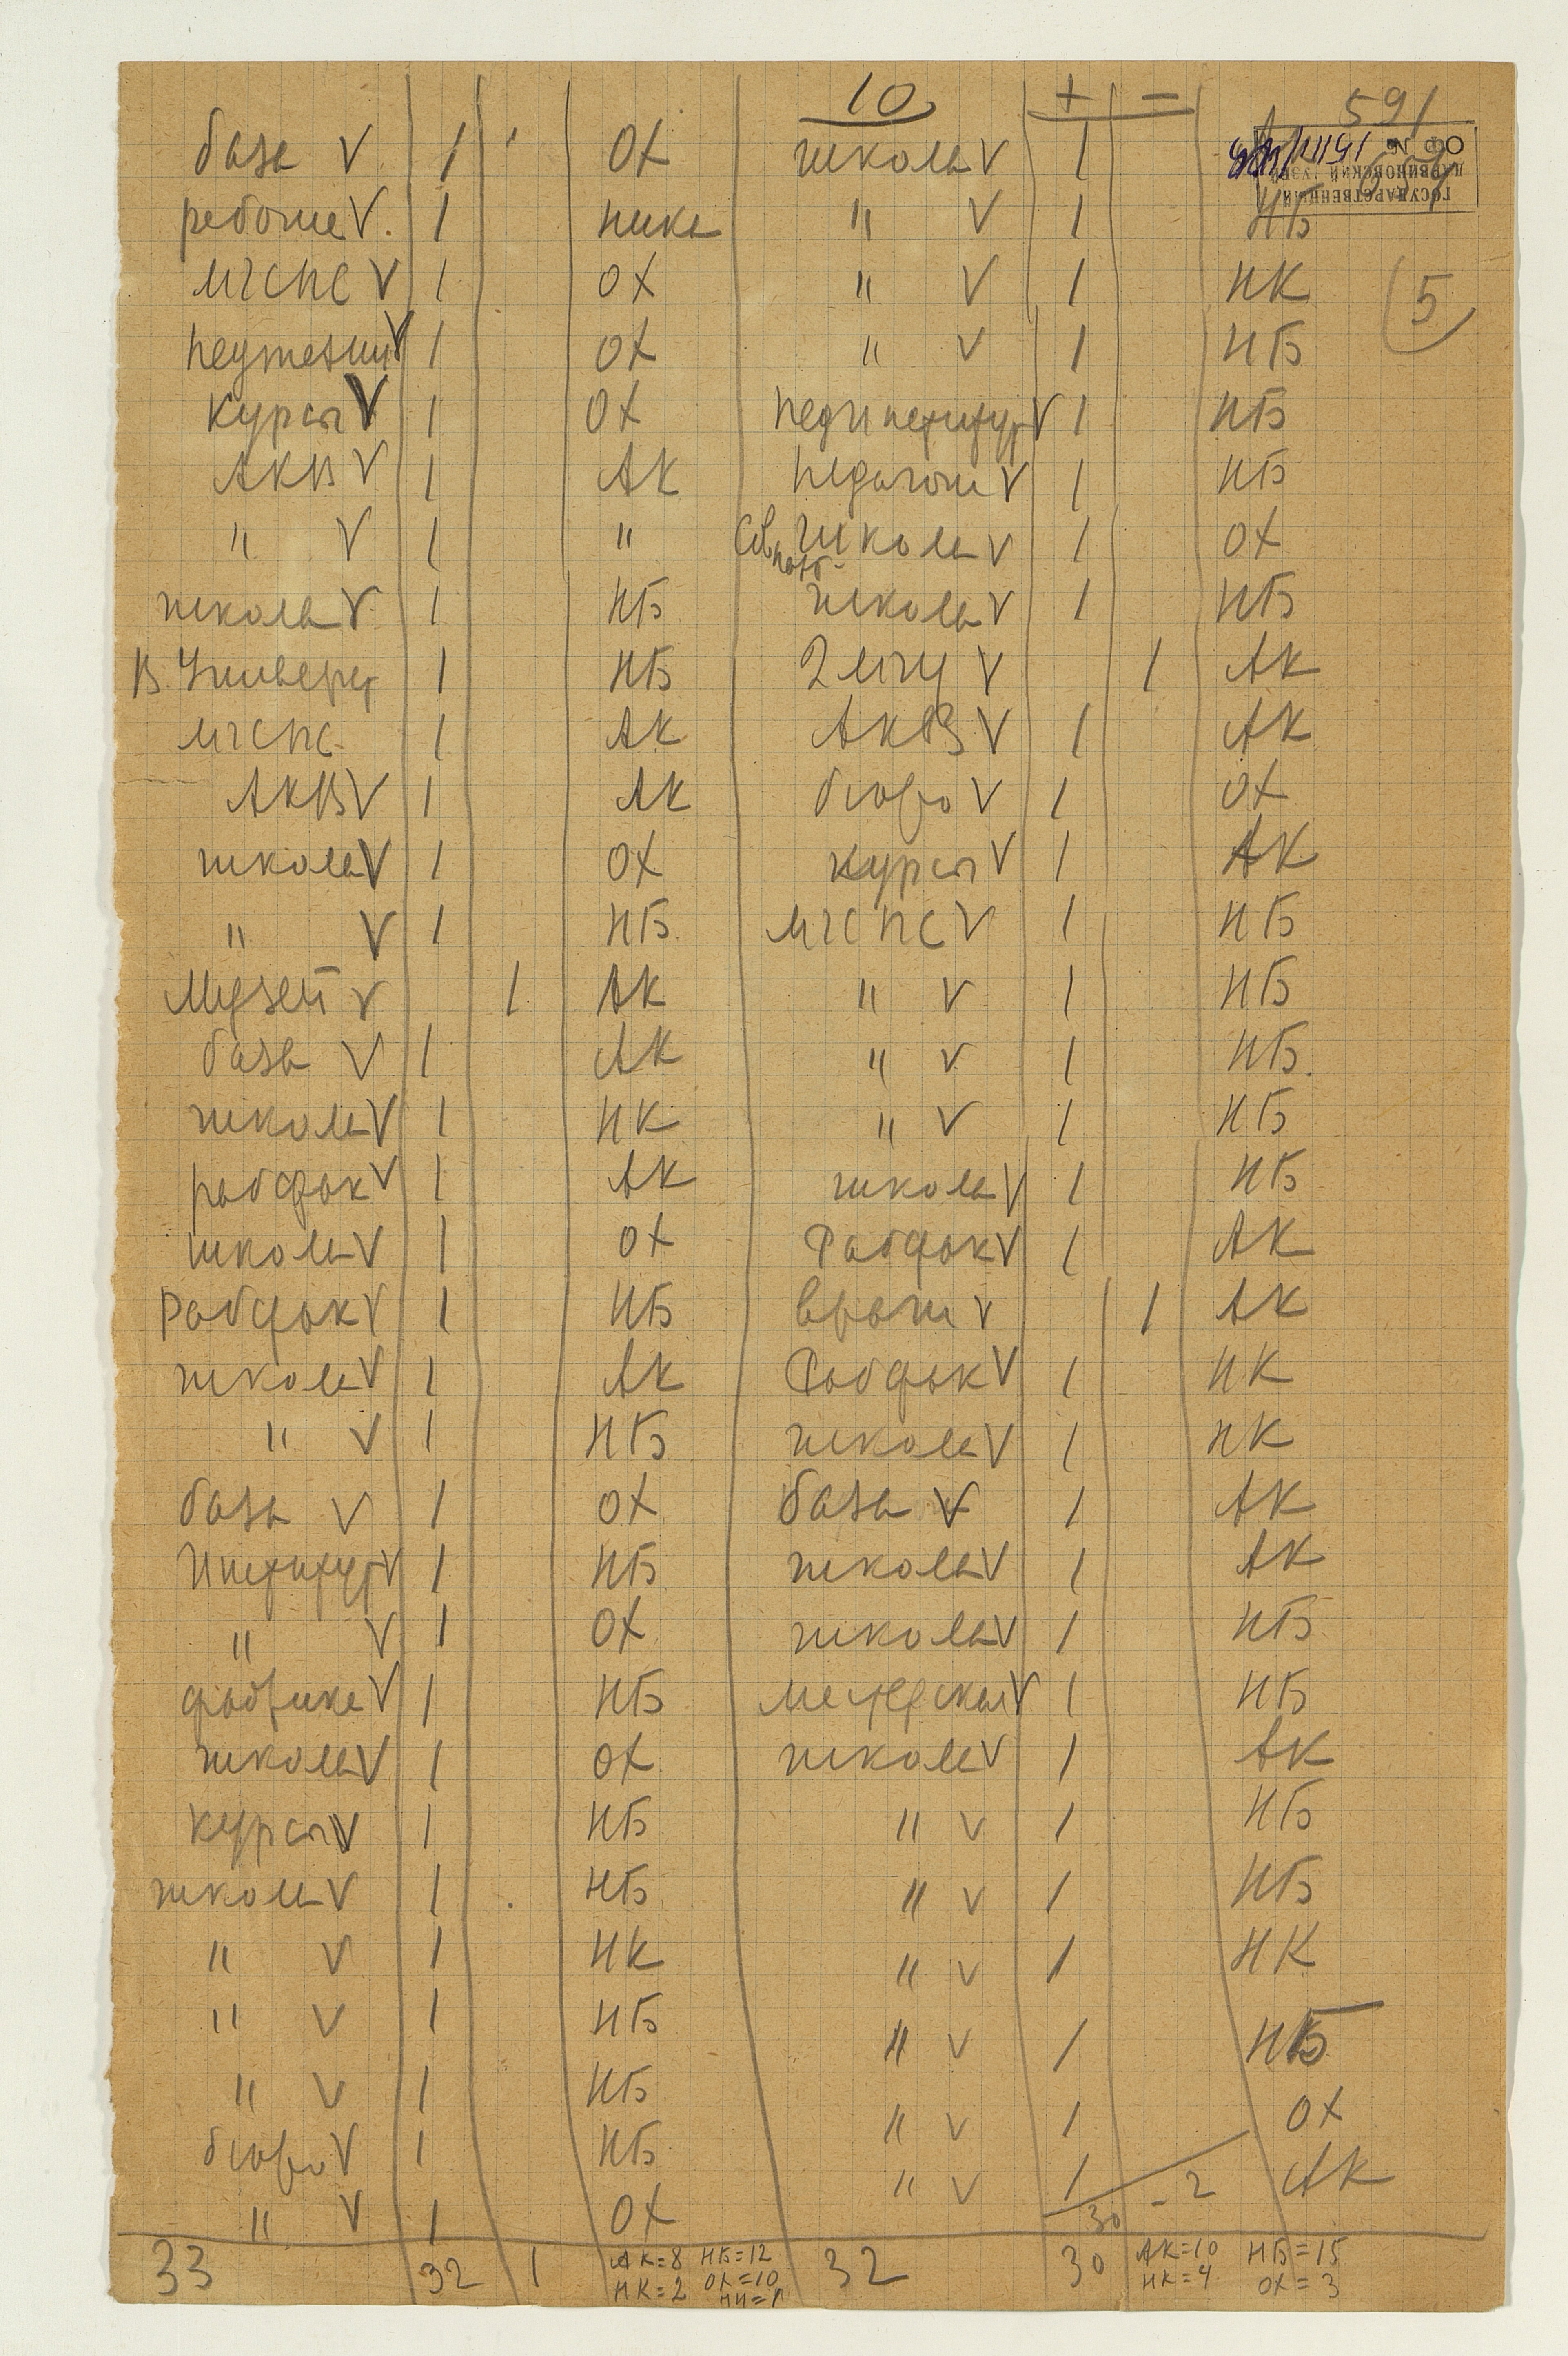 10 + − 591
база V 1 ОХ школа V 1
ГОСУДАРСТВЕННЫЙ
ДАРВИНОВСКИЙ МУЗЕЙ
ОФ №
рабочие V. 1 ника " V 1 НБ
МГСПС V 1 ОХ " V 1 НК
5
V 1 ОХ " V 1 НБ
курсы V 1 ОХ Пединститут V 1 НБ
АКВ V 1 АК педагоги V 1 НБ
" V 1 " школа V 1 ОХ
школа V 1 НБ школа V 1 НБ
В. Универс 1 НБ 2 МГУ V 1 АК
МГСПС 1 АК АКВ V 1 АК
АКВ V 1 АК бюро V 1 ОХ
школа V 1 ОХ курсы V 1 АК
" V 1 НБ МГСПС V 1 НБ
Музей V 1 АК " V 1 НБ
база V 1 АК " V 1 НБ.
школа V 1 НК " V 1 НБ
рабфак V 1 АК школа V 1 НБ
школа V 1 ОХ Рабфак V 1 АК
Рабфак V 1 НБ врачи V 1 АК
школа V 1 АК Рабфак V 1 НК
" V 1 НБ школа V 1 НК
база V 1 ОХ база V 1 АК
Институт V 1 НБ школа V 1 АК
" V 1 ОХ школа V 1 НБ
фабрика V 1 НБ мастерская V 1 НБ
школа V 1 ОХ школа V 1 АК
курсы V 1 НБ " V 1 НБ
школа V 1 НБ " V 1 НБ
" V 1 НК " V 1 НК
" V 1 НБ " V 1 НБ
" V 1 НБ " V 1 ОХ
бюро V 1 НБ " V 1 АК
" V 1 ОХ 30 − 2
33 32 1 АК=8 НБ=12 32 30 АК=10 НБ=15
НК=2 ОХ=10 НК=4 ОХ=3
НИ=1